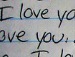 I love yo
ove you.